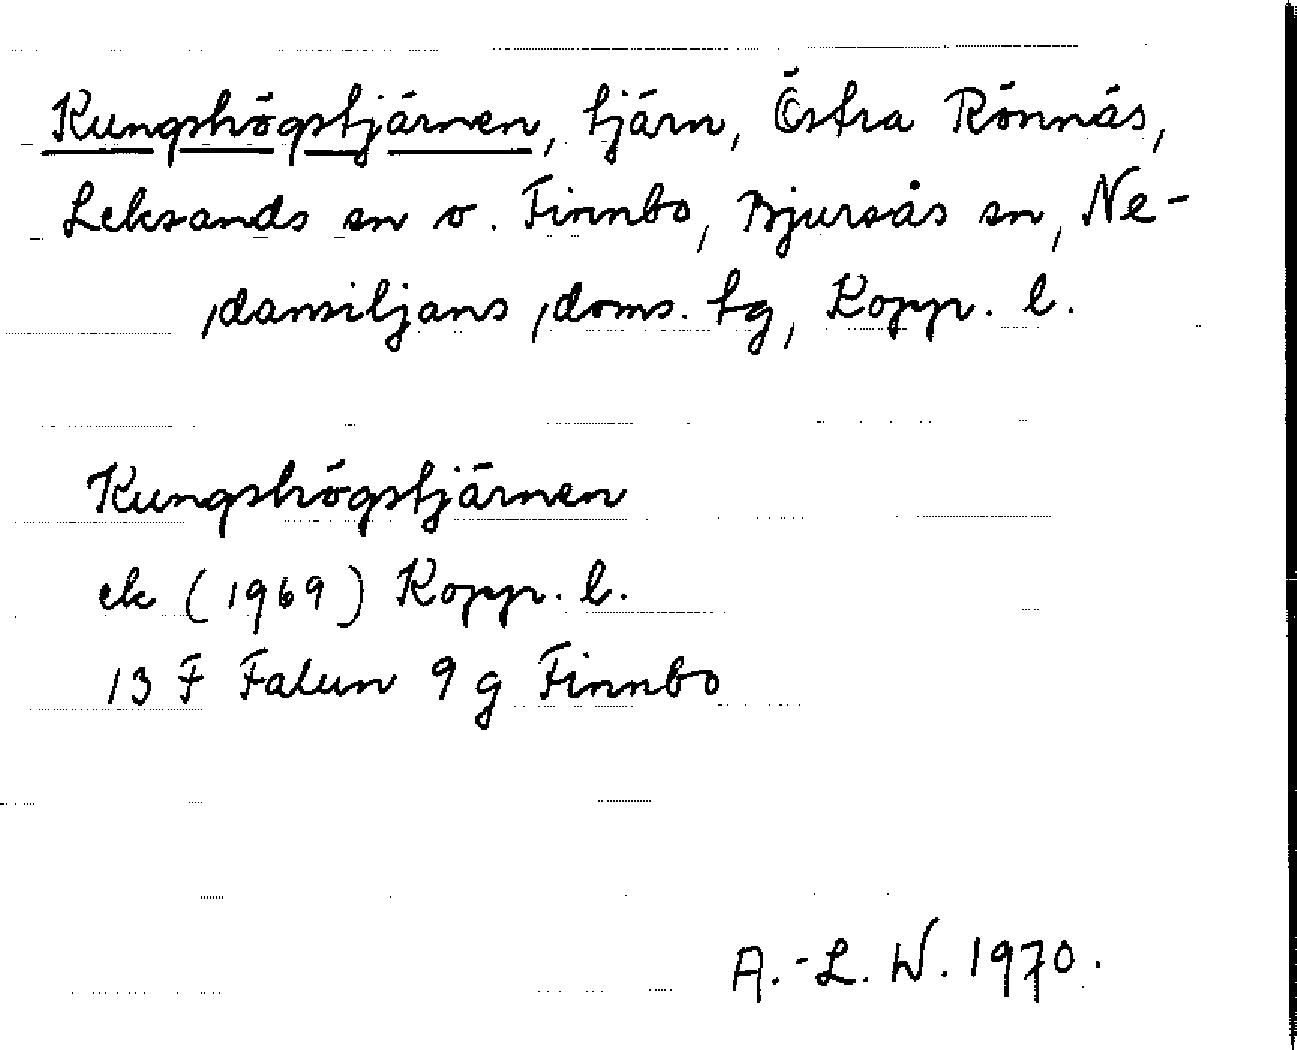 Kungshögstjärnen, tjärn, Östra Rönnäs,
Leksands sn o. Finnbo, Bjursås sn, Ne-
dansiljans doms. tg, Kopp. l.
Kungshögstjärnen
ek (1969) Kopp. l.
13 F Falun 9 g Finnbo
A.-L. W. 1970.